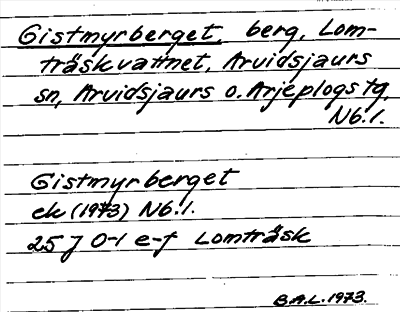 Gistmyrberget, berg, Lom-
träskvattnet, Arvidsjaurs
sn, Arvidsjaurs o. Arjeplogs tg,
Nb.l.
Gistmyrberget
ek (1973) Nb.l.
25 J 0-1 e-f Lomträsk
B.A.L. 1973.